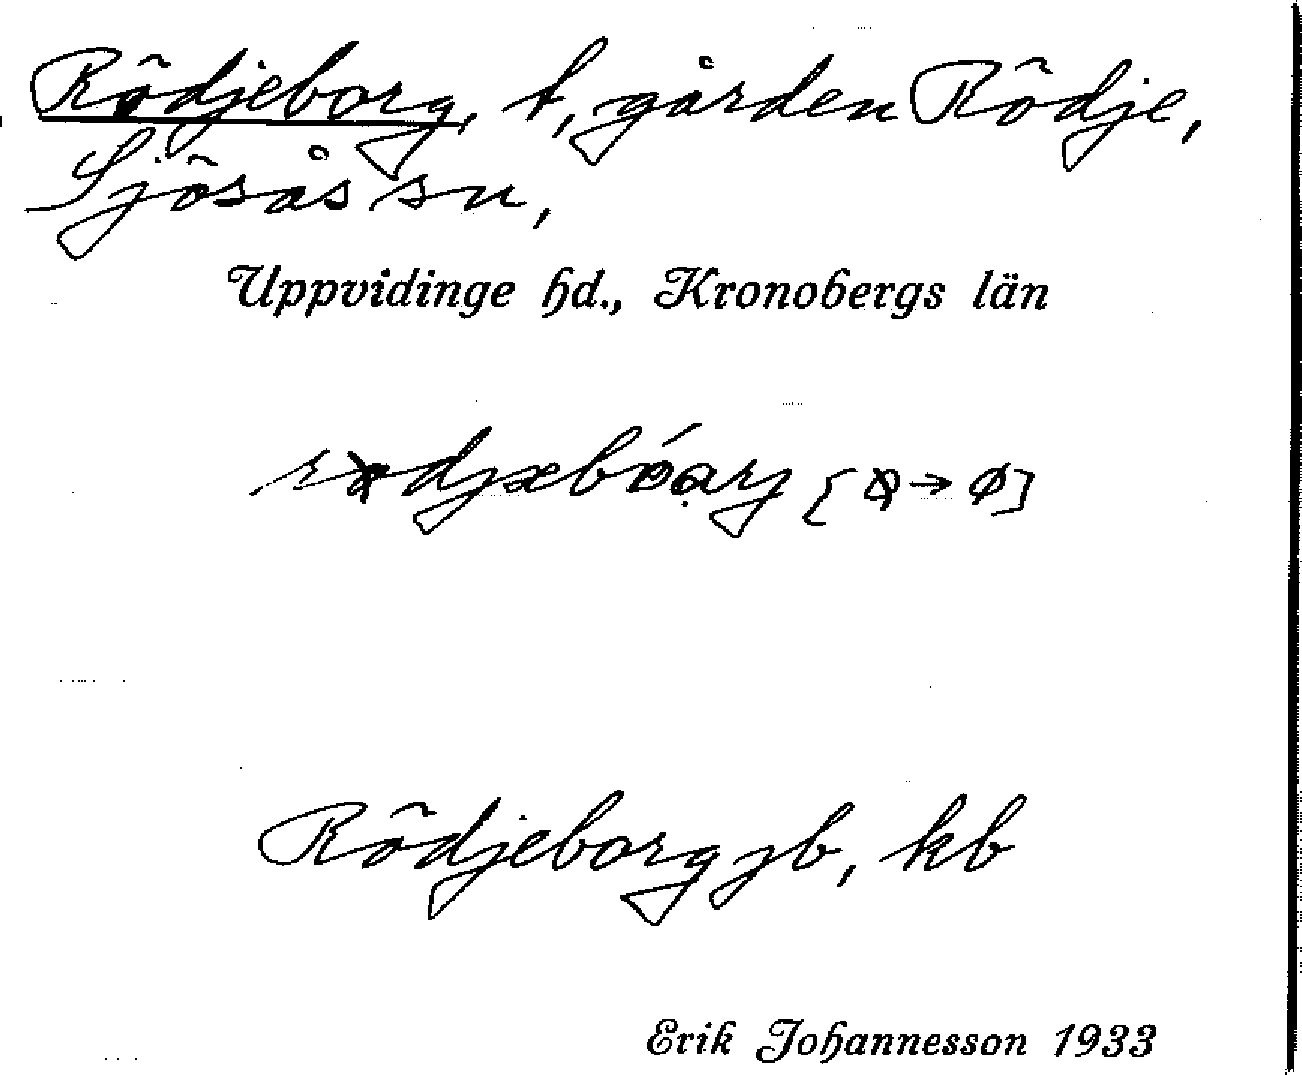 Rödjeborg, t, gården Rödje,
Sjösås sn,
Uppvidinge hd., Kronobergs län
Rödjeborg jb, kb
Erik Johannesson 1933